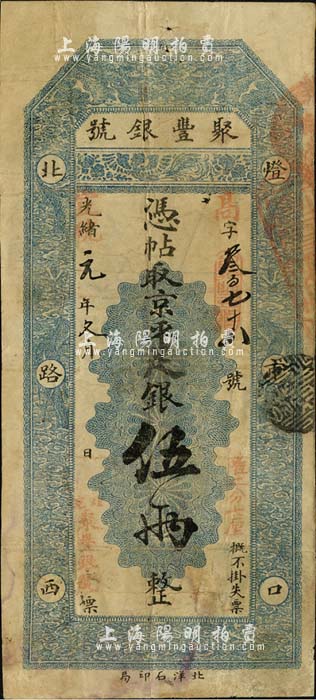 上海陽明拍賣
www.yangmingauction.com
聚豐銀號
燈
市
口
北
路
西
字叁百七十八號
憑帖取京平足銀伍兩整
光緒元年又月日票
概不掛失票
上海陽明拍賣
www.yangmingauction.com
上海陽明拍賣
www.yangmingauction.com
北洋石印局